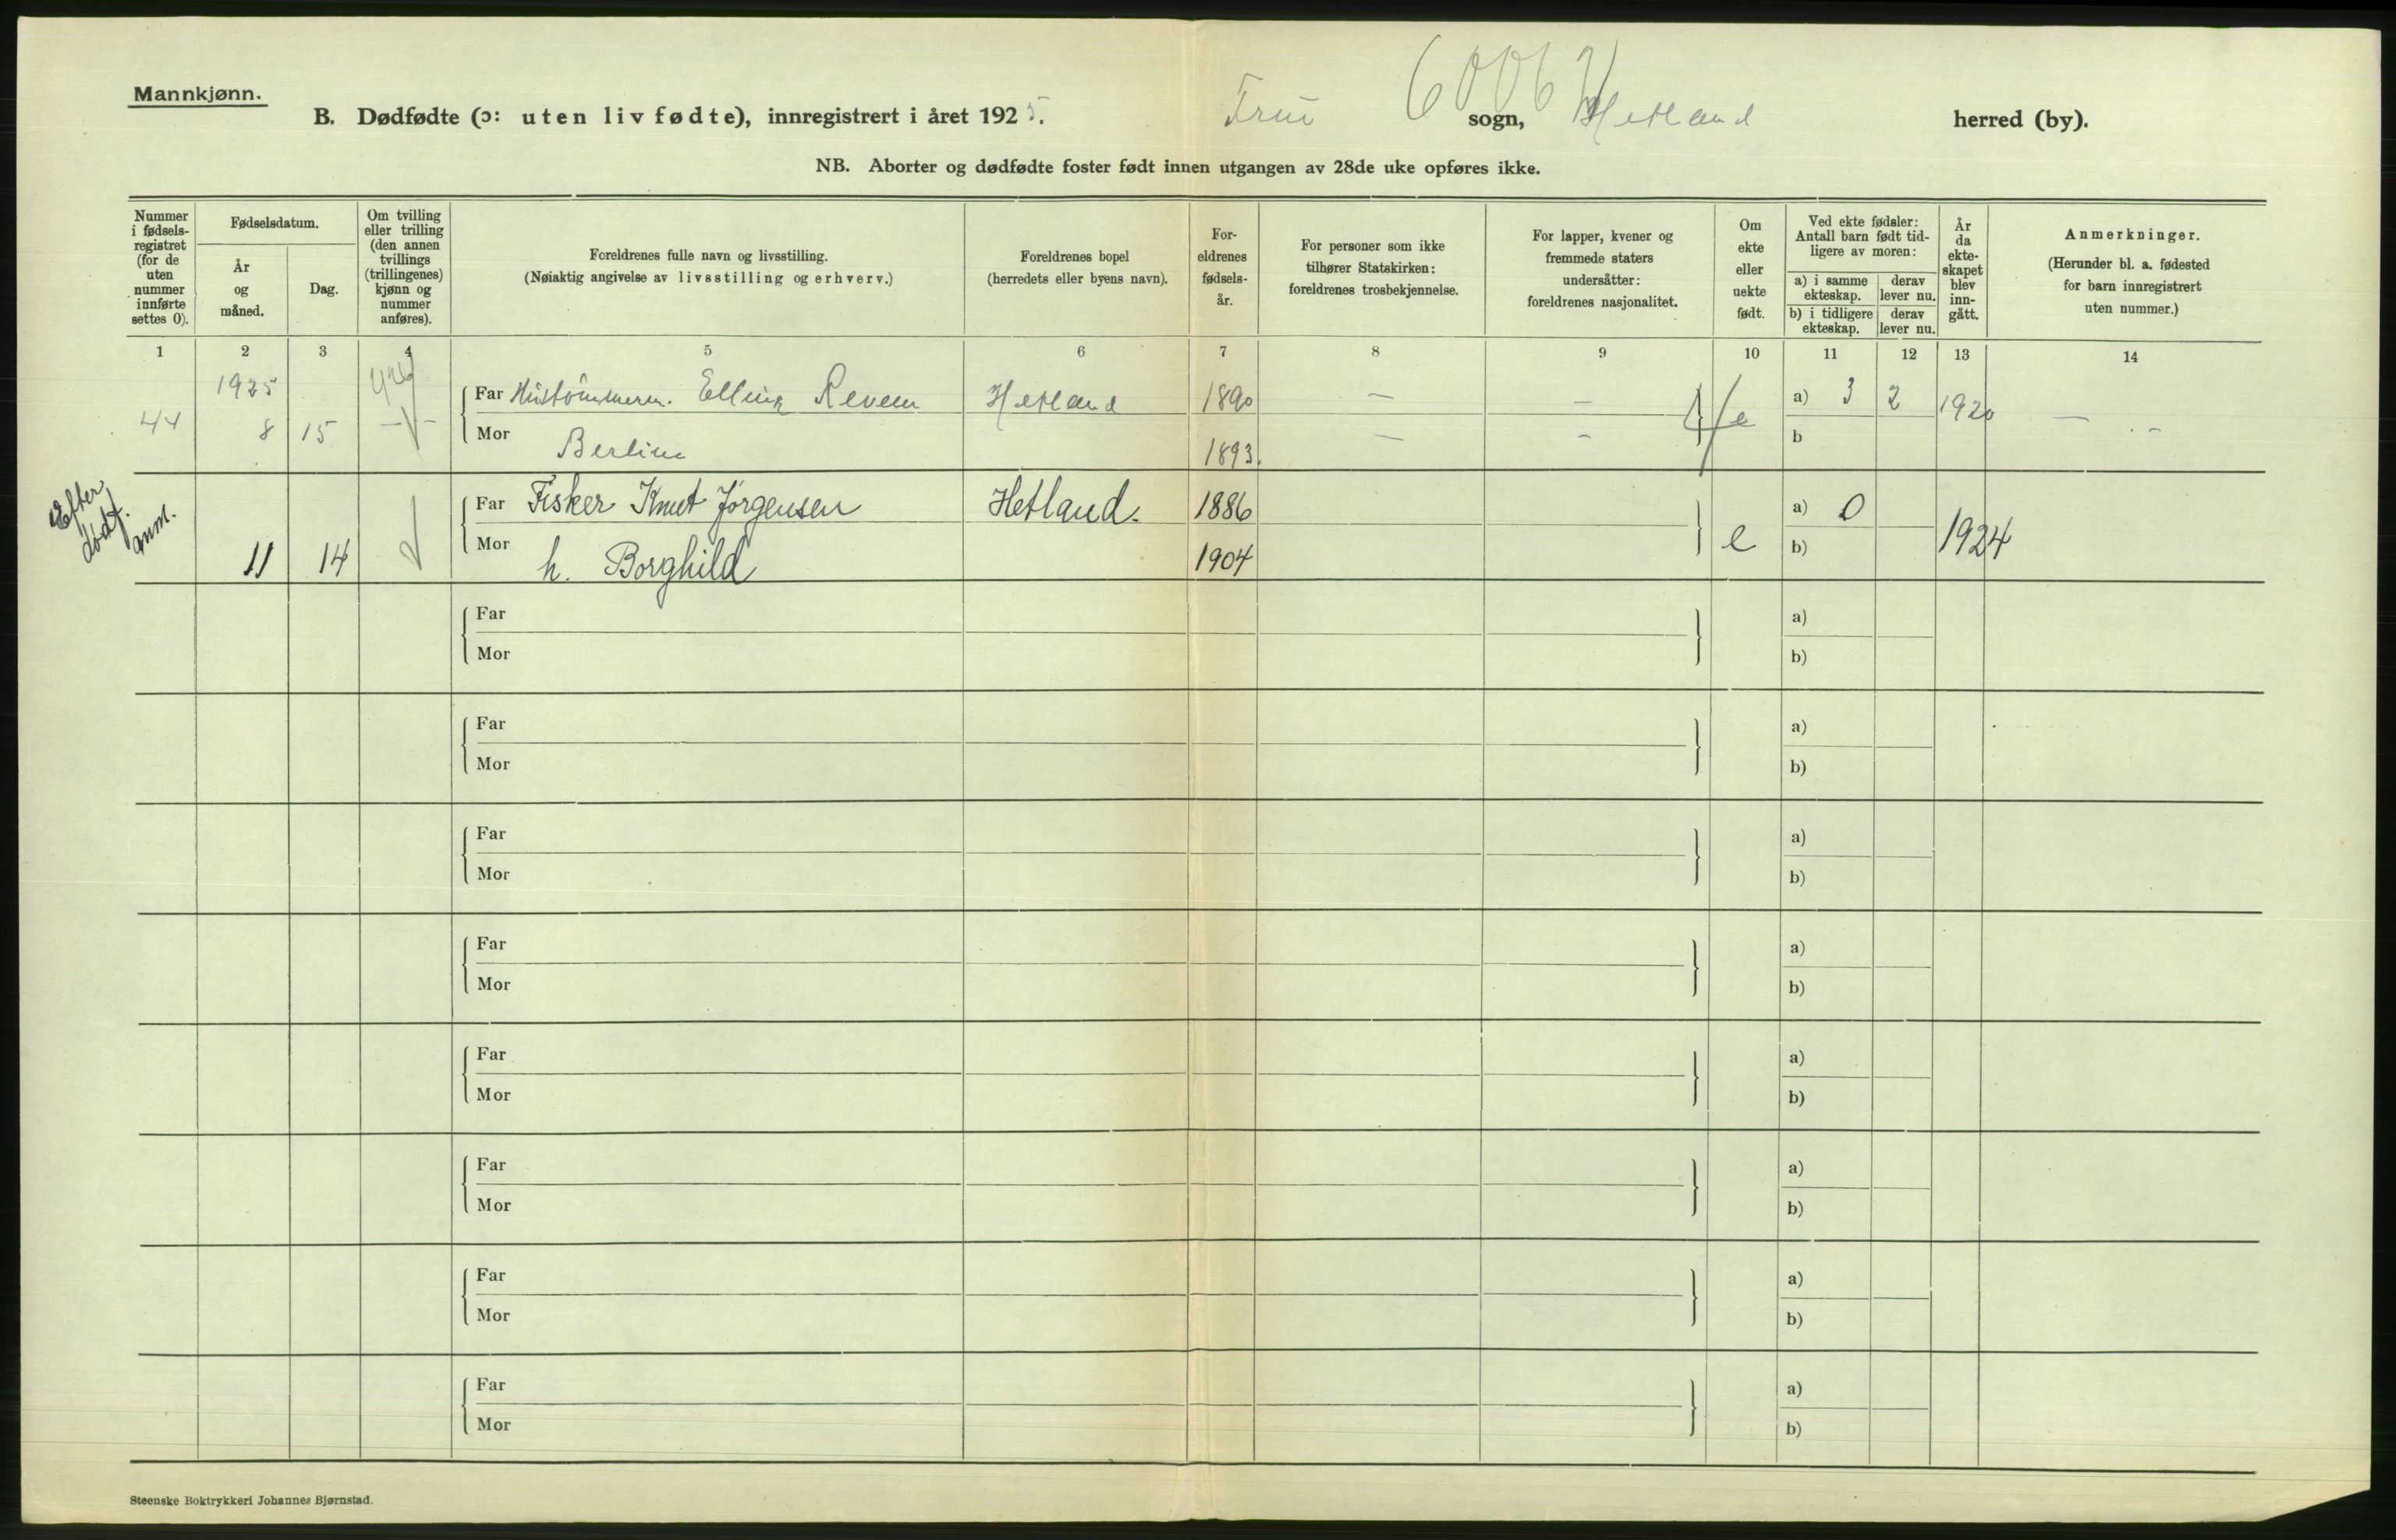 Mannkjønn.
B. Dødfødte (ɔ: uten liv fødte), innregistrert i året 1925. Frue sogn, Hetland herred (by).
6006
NB. Aborter og dødfødte foster født innen utgangen av 28de uke opføres ikke.
Nummer i fødselsregistret (for de uten nummer innførte settes 0).
Fødselsdatum.
År og måned.
Dag.
Om tvilling eller trilling (den annen tvillings (trillingenes) kjønn og nummer anføres).
Foreldrenes fulle navn og livsstilling.
(Nøiaktig angivelse av livsstilling og erhverv.)
Foreldrenes bopel
(herredets eller byens navn).
Foreldrenes fødselsår.
For personer som ikke tilhører Statskirken: foreldrenes trosbekjennelse.
For lapper, kvener og fremmede staters undersåtter: foreldrenes nasjonalitet.
Om ekte eller uekte født.
Ved ekte fødsler: Antall barn født tidligere av moren:
a) i samme ekteskap.
derav lever nu.
b) i tidligere ekteskap.
derav lever nu.
År da ekteskapet blev inngått.
Anmerkninger.
(Herunder bl. a. fødested for barn innregistrert uten nummer.)
1 2 3 4 5 6 7 8 9 10 11 12 13 14
1925 Far Hustømmerm. Elling Hetland 1890 — — a) 3 2 1920 —
44 8 15 — Mor Berline 1893. — - e b
Efter dødf. anm.
Far Fisker Knut Jørgensen Hetland. 1886 a) 0 1924
11 14 Mor h. Borghild 1904 e b)
Far a)
Mor b)
Far a)
Mor b)
Far a)
Mor b)
Far a)
Mor b)
Far a)
Mor b)
Far a)
Mor b)
Far a)
Mor b)
Far a)
Mor b)
Steenske Boktrykkeri Johannes Bjørnstad.